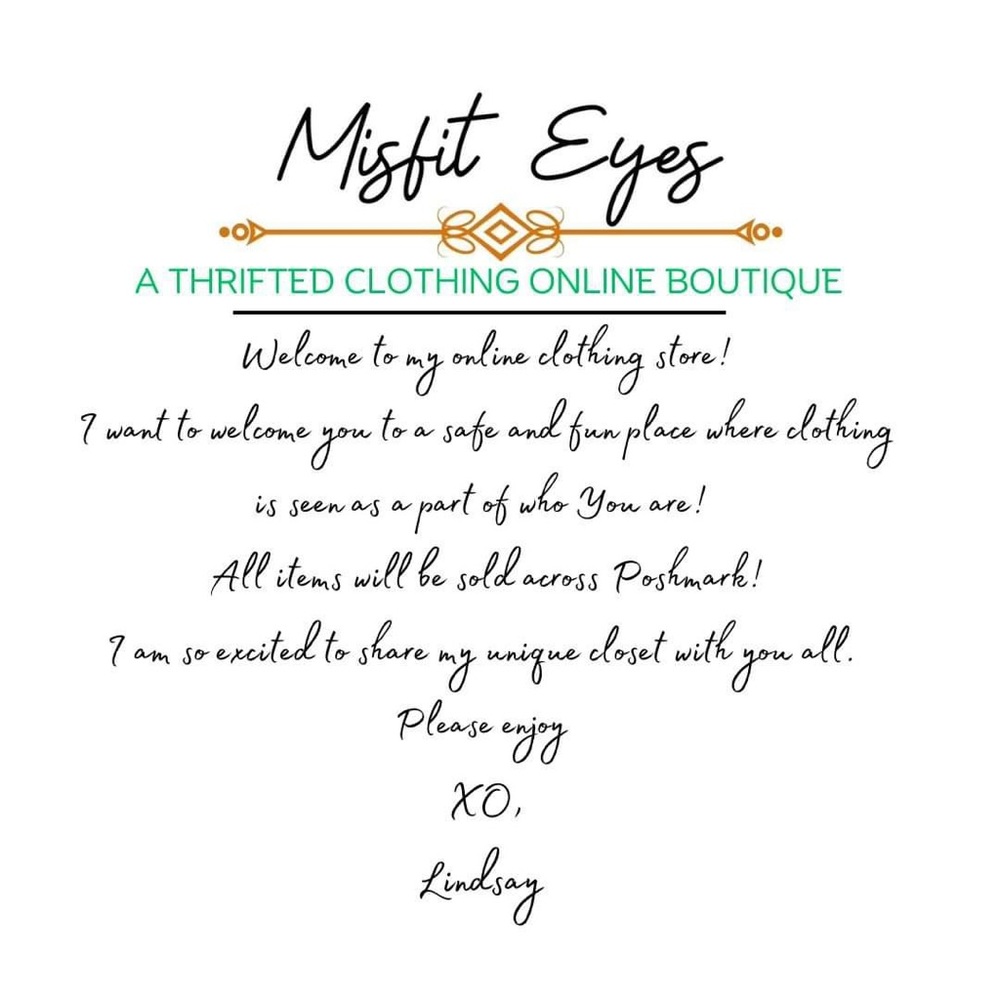 Misfit Eyes
A THRIFTED CLOTHING ONLINE BOUTIQUE
Welcome to my online clothing store!
I want to welcome you to a safe and fun place where clothing
is seen as a part of who You are!
All items will be sold across Poshmark!
I am so excited to share my unique closet with you all.
Please enjoy
XO,
Lindsay